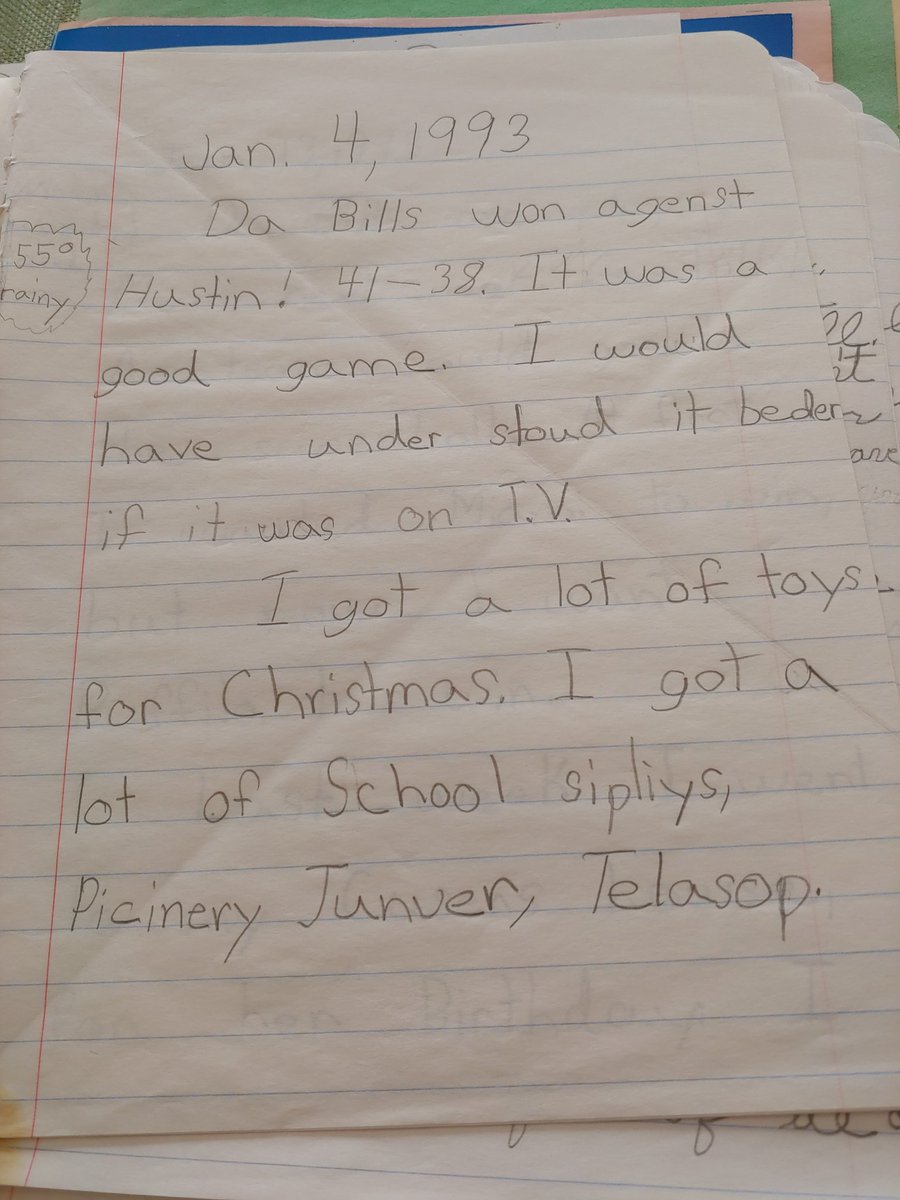 Jan. 4, 1993
Da Bills won agenst
55°
rainy
Hustin! 41-38. It was a
good game. I would
have under stoud it beder
if it was on T.V.
I got a lot of toys
for Christmas. I got a
lot of School sipliys,
Picinery Junver, Telasop.
it
are